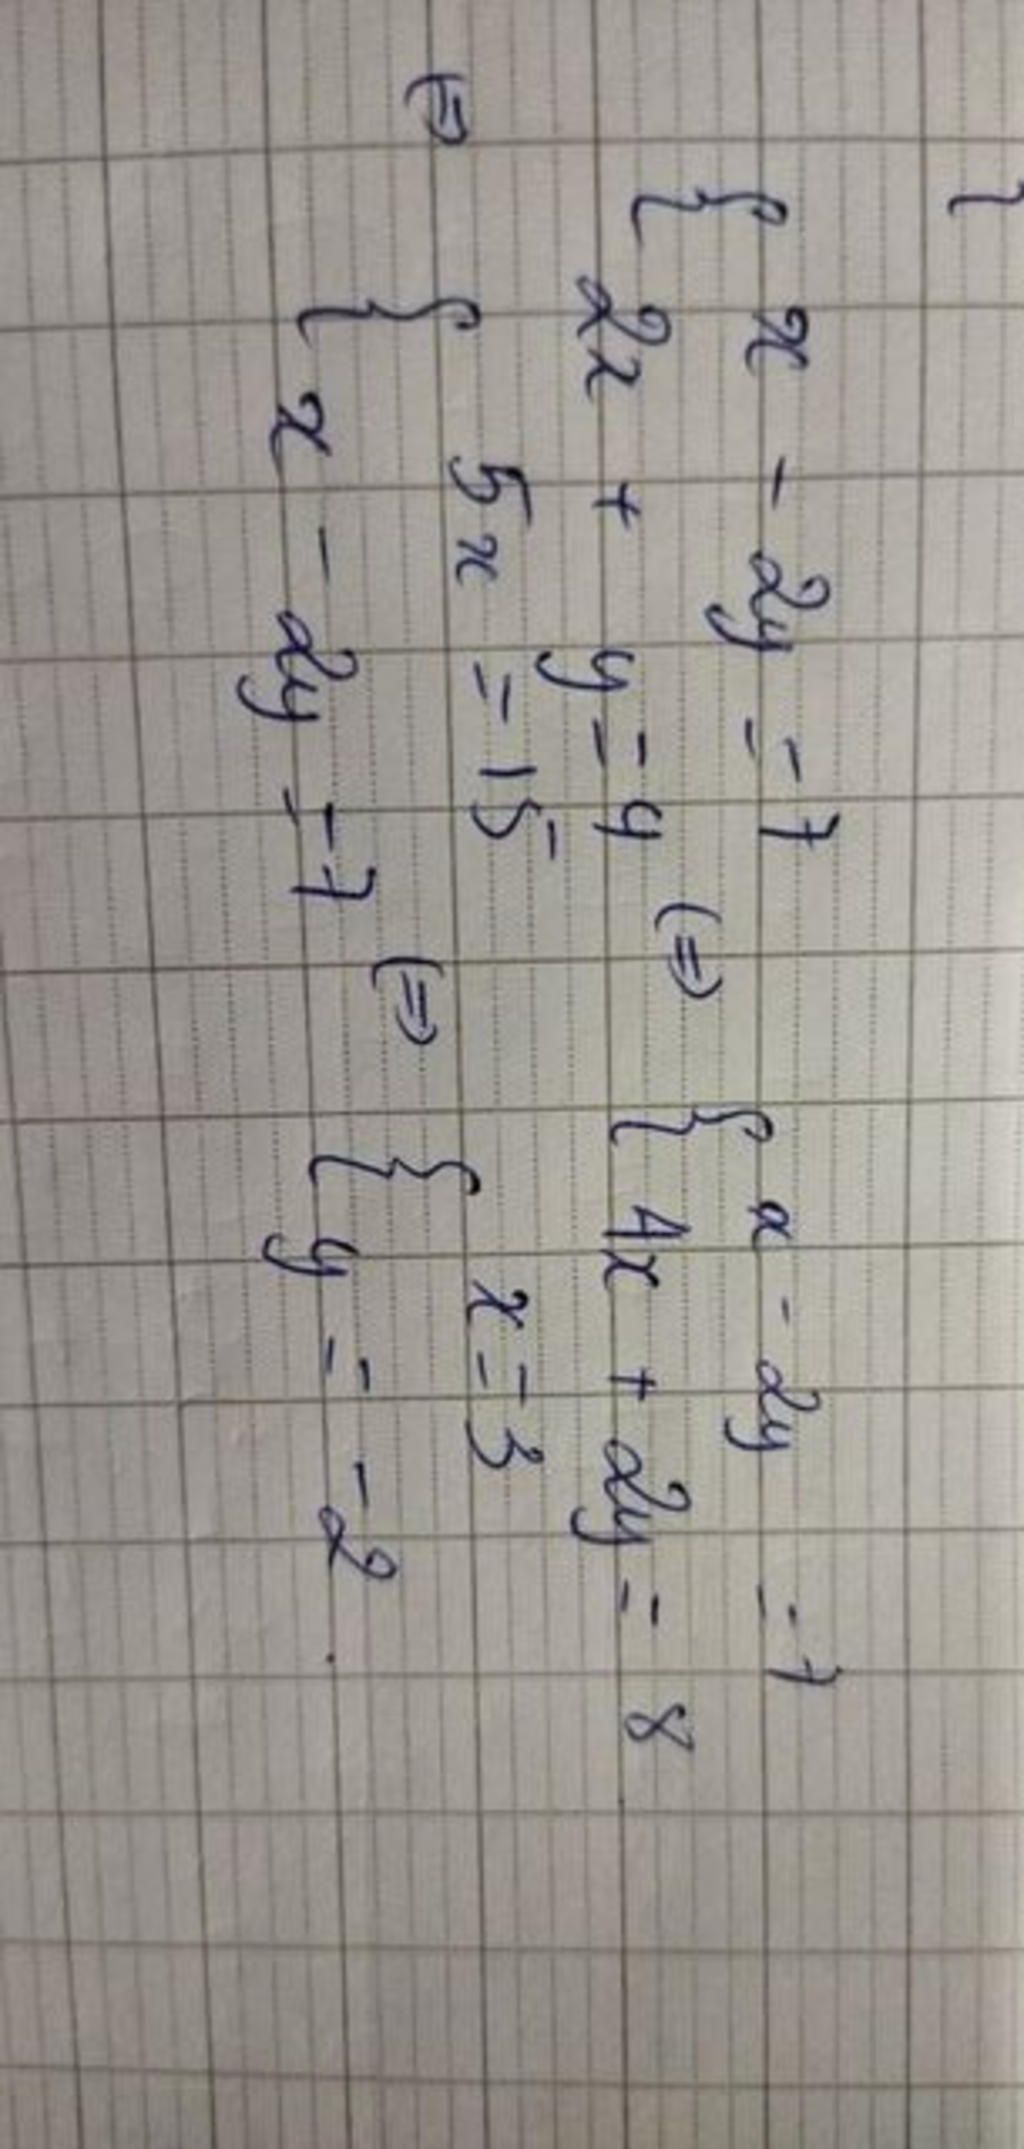 { x - 2y = 7
2x + y = 4 (=) { x - 2y = 7
4x + 2y = 8
(=) { 5x = 15
x - 2y = 7 (=) { x = 3
y = -2